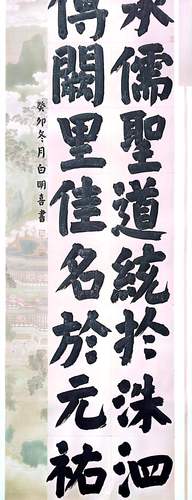 承儒聖道統於洙泗
傳闕里佳名於元祐
癸卯冬月白明喜書